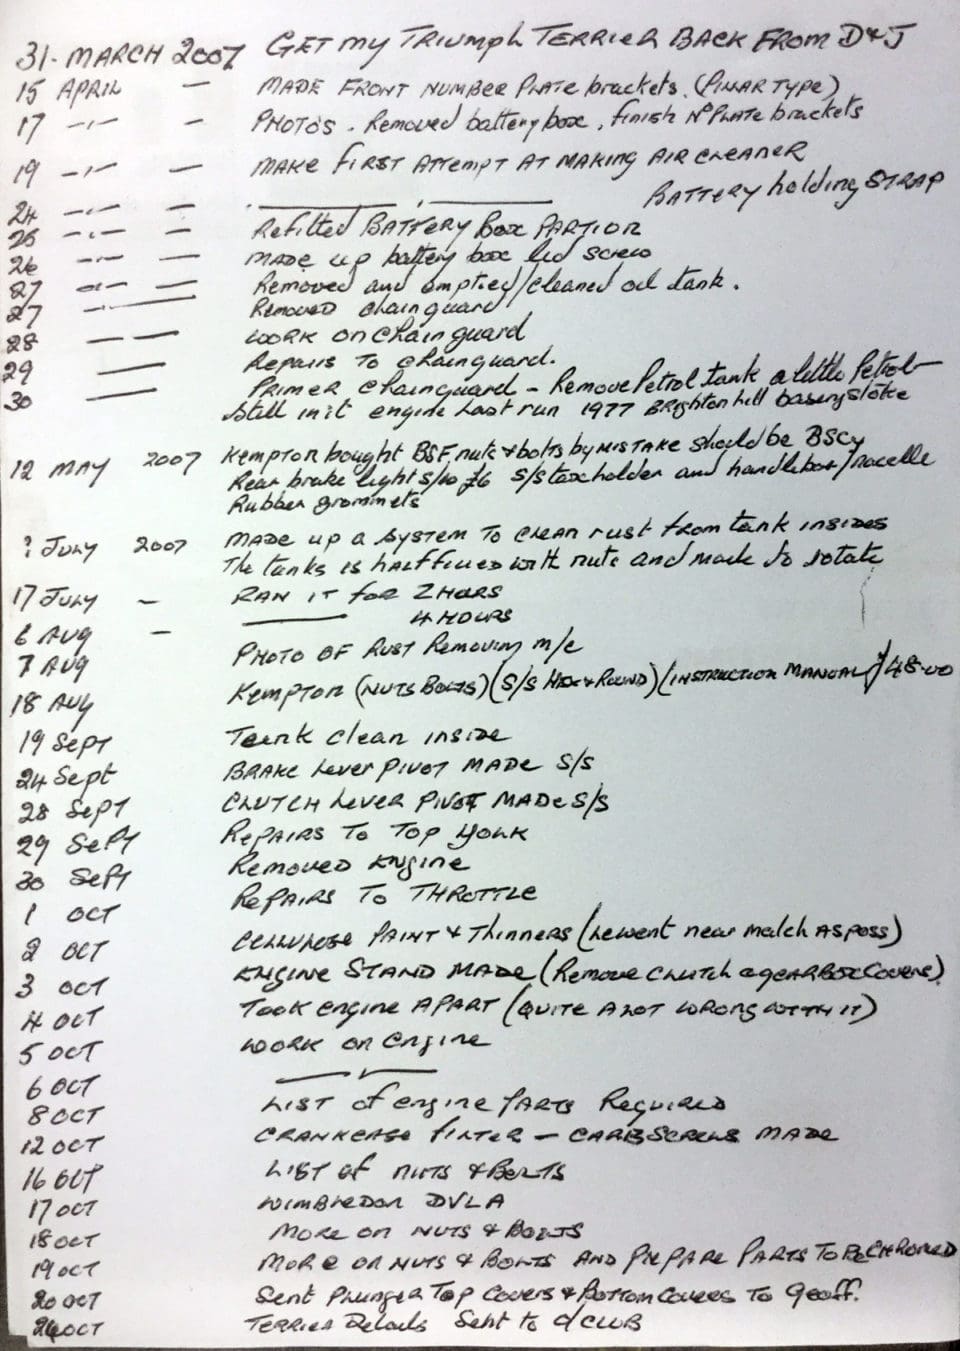 31. MARCH 2007 GET my TRIUMPH TERRIER BACK FROM D&J
15 APRIL — MADE FRONT NUMBER PLATE brackets. (PILLAR TYPE)
17 -"- — PHOTOS. Removed battery box, finish No PLATE brackets
19 -"- — MAKE FIRST ATTEMPT AT MAKING AIR CLEANER
24 -"- — BATTERY holding STRAP
25 -"- — Refitted BATTERY Box
26 -"- — MADE up battery box lid screw
27 -"- — Removed and emptied/cleaned oil tank.
27 -"- — REMOVED chainguard
28 — — WORK ON chainguard
29 — REPAIRS TO chainguard.
30 — PRIMER chainguard - Remove Petrol tank a little Petrol
still in it engine last run 1977 Brighton hill basingstoke
12 MAY 2007 Kempton bought BSF, nuts & bolts by MISTAKE should be BSCy
Rear brake light S/W £6 S/S tax holder and handlebar/nacelle
Rubber grommets
? JULY 2007 MADE up a system TO CLEAN rust from tank insides
The tanks is HALF filled with nuts and made to rotate
17 JULY — RAN IT for 2 HOURS
6 AUG — — 4 HOURS
7 AUG PHOTO OF RUST Removing m/c
18 AUG Kempton (NUTS BOLTS) (S/S HEX & ROUND) (INSTRUCTION MANUAL) 48-00
19 Sept Tank clean inside
24 Sept BRAKE lever PIVOT MADE S/S
28 SEPT CLUTCH lever PIVOT MADE S/S
29 SEPT REPAIRS TO TOP YOLK
30 SEPT REMOVED ENGINE
1 OCT REPAIRS TO THROTTLE
2 OCT CELLULOSE PAINT & Thinners (newent near match AS POSS)
3 OCT ENGINE STAND MADE (Remove CLUTCH & GEARBOX Covers)
4 OCT TOOK engine APART (QUITE A LOT WRONG WITH IT)
5 OCT WORK on engine
6 OCT — —
8 OCT LIST of engine PARTS REQUIRED
12 OCT CRANKCASE FILTER - CARB SCREWS MADE
16 OCT LIST of NUTS & BOLTS
17 OCT WIMBLEDON DVLA
18 OCT MORE ON NUTS & BOLTS
19 OCT MORE ON NUTS & BOLTS AND PREPARE PARTS TO BE CHROMED
20 OCT Sent Plunger TOP COVERS & BOTTOM COVERS TO Geoff.
24 OCT TERRIER Details Sent to CLUB